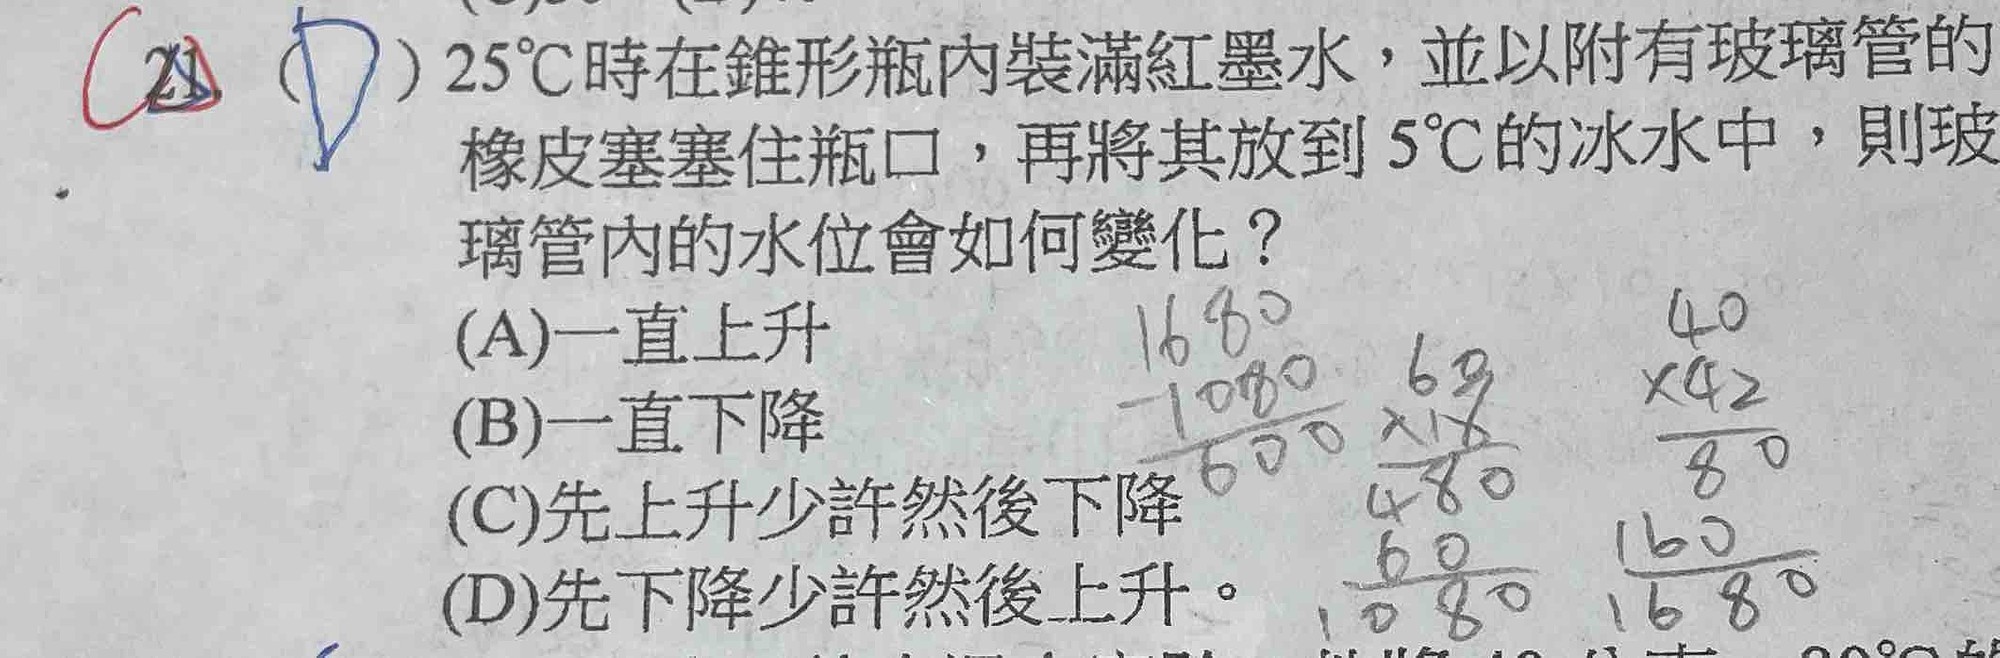 21. ( D ) 25℃時在錐形瓶內裝滿紅墨水，並以附有玻璃管的
橡皮塞塞住瓶口，再將其放到 5℃的冰水中，則玻
璃管內的水位會如何變化？
(A)一直上升
(B)一直下降
(C)先上升少許然後下降
(D)先下降少許然後上升。
1680
-1080
600
60
×18
480
60
1080
40
×42
80
160
1680